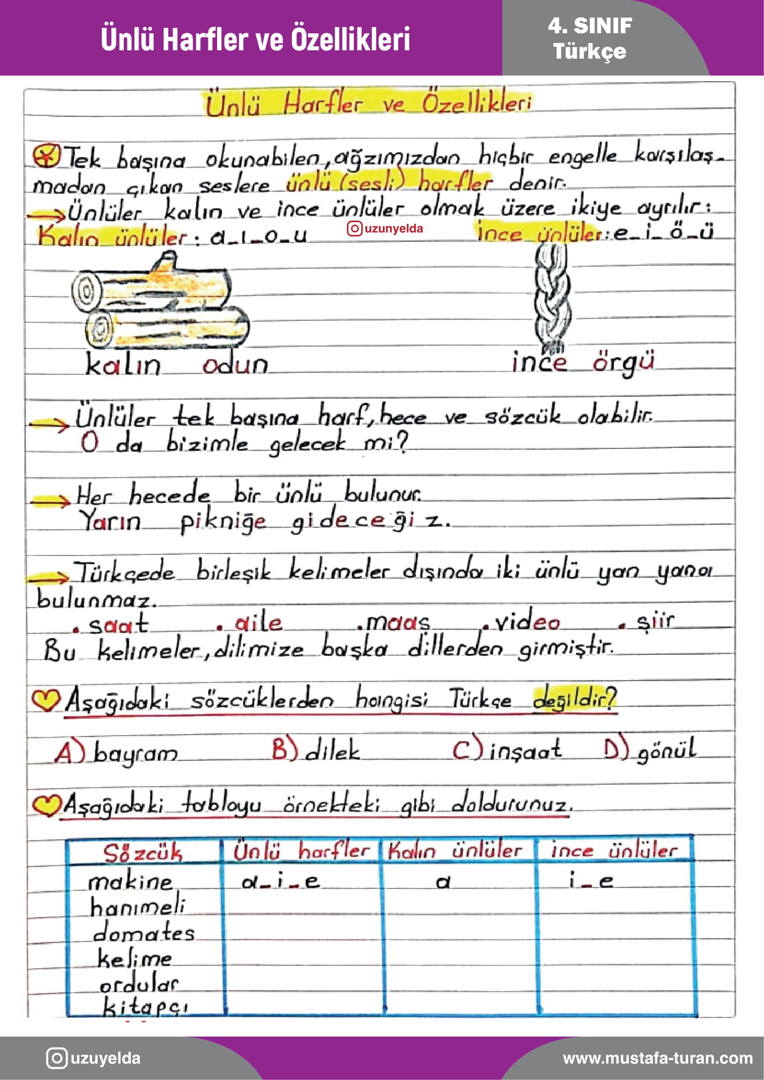 Ünlü Harfler ve Özellikleri
4. SINIF
Türkçe
Ünlü Harfler ve Özellikleri
Tek başına okunabilen, ağzımızdan hiçbir engelle karşılaş-
madan çıkan seslere ünlü (sesli) harfler denir.
→Ünlüler kalın ve ince ünlüler olmak üzere ikiye ayrılır:
Kalın ünlüler: a-ı-o-u
uzunyelda
ince ünlüler: e-i-ö-ü
kalın odun
ince örgü
→Ünlüler tek başına harf, hece ve sözcük olabilir.
O da bizimle gelecek mi?
→Her hecede bir ünlü bulunur.
Yarın pikniğe gideceğiz.
→Türkçede birleşik kelimeler dışında iki ünlü yan yana
bulunmaz.
. saat . aile . maaş . video . şiir
Bu kelimeler, dilimize başka dillerden girmiştir.
Aşağıdaki sözcüklerden hangisi Türkçe değildir?
A) bayram B) dilek C) inşaat D) gönül
Aşağıdaki tabloyu örnekteki gibi doldurunuz.
Sözcük Ünlü harfler Kalın ünlüler ince ünlüler
makine a-i-e a i-e
hanımeli
domates
kelime
ordular
kitapçı
uzuyelda
www.mustafa-turan.com